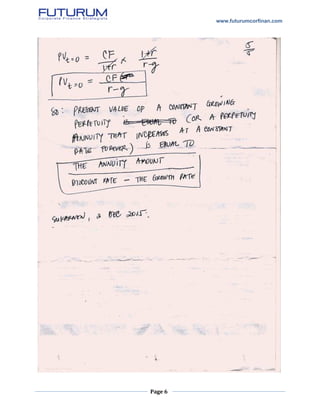 FUTURUM
Corporate Finance Strategists
www.futurumcorfinan.com
PVt=0 = CF/1+r x 1+r/r-g
5/5
PVt=0 = CF/r-g
SO: PRESENT VALUE OF A CONSTANT GROWING
PERPETUITY IS EQUAL TO (OR A PERPETUITY
ANNUITY THAT INCREASES AT A CONSTANT
RATE FOREVER) IS EQUAL TO
THE ANNUITY AMOUNT
DISCOUNT RATE - THE GROWTH RATE
SUKARNEN, 2 DEC 2015.
Page 6